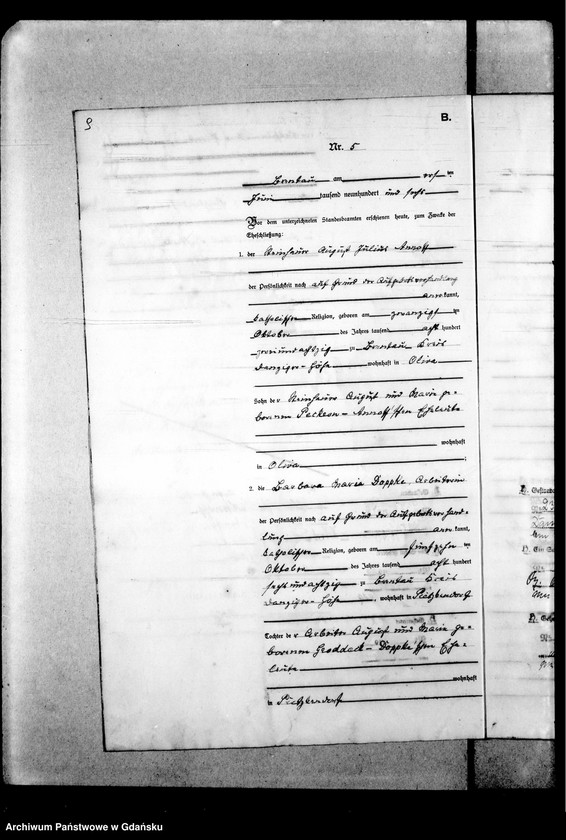 9
B.
Nr. 5
Brentau am ersten
Juni tausend neunhundert und sechs
Vor dem unterzeichneten Standesbeamten erschienen heute, zum Zwecke der
Eheschließung:
1. der August Julius Annoff
der Persönlichkeit nach auf Grund der Aufgebotsverhandlung
anerkannt,
katholischer Religion, geboren am zwanzigsten
Oktober des Jahres tausend acht hundert
zweiundachtzig zu Brentau Kreis
Danziger Höhe wohnhaft in Oliva
Sohn der August und Maria ge-
borenen Annoff'schen Eheleute
wohnhaft
in Oliva ;
2. die Barbara Maria Doppke, Arbeiterin
der Persönlichkeit nach auf Grund der Aufgebotsverhand-
lung anerkannt,
katholischer Religion, geboren am fünfzehnten
Oktober des Jahres tausend acht hundert
sechsundachtzig zu Brentau Kreis
Danziger Höhe, wohnhaft in Pietzkendorf
Tochter der Arbeiter August und Maria ge-
borenen Groddeck-Doppke'schen Ehe-
leute
wohnhaft
in Pietzkendorf
Archiwum Państwowe w Gdańsku